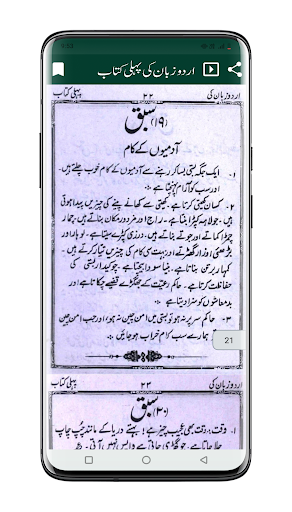 4:03
اردو زبان کی پہلی کتاب
اردو زبان کی ۲۲ پہلی کتاب
(۱۹) سبق
آدمیوں کے کام
۱- ایک جگہ بستی بسا کر رہنے سے آدمیوں کے کام خوب چلتے ہیں۔
اور سب کو آرام پہنچتا ہے ۰
۲- کسان کھیتی کرتا ہے۔ کھیتی سے کھانے کی چیزیں پیدا ہوتی
ہیں۔ جولاہہ کپڑا بنتا ہے۔ راج اور مزدور مکان بناتے ہیں۔ چمار
چمڑا کماتے اور جوتے بناتے ہیں۔ درزی کپڑے سیتا ہے۔ لوہار اور
بڑھئی اوزار گھڑتے اور بہت سی کام کی چیزیں تیار کرتے ہیں۔
کمہار برتن بناتا ہے۔ بنیا سودا بیچتا ہے۔ چوکیدار بستی کی
حفاظت کرتا ہے۔ حاکم رعیت کے جھگڑے قضیے چکاتا ہے اور
بدمعاشوں کو سزا دیتا ہے ۰
۳- حاکم سر پر نہ ہو تو بستی میں امن چین نہ ہو، اور جب امن چین
نہ ہو تو ہمارے سب کام خراب ہو جائیں ۰
21
اردو زبان کی ۲۳ پہلی کتاب
(۲۰) سبق
۱- وقت بھی عجیب چیز ہے! بہتے دریا کے مانند چپ چاپ
چلا جاتا ہے۔ جو گھڑی جاتی ہے واپس نہیں آتی۔